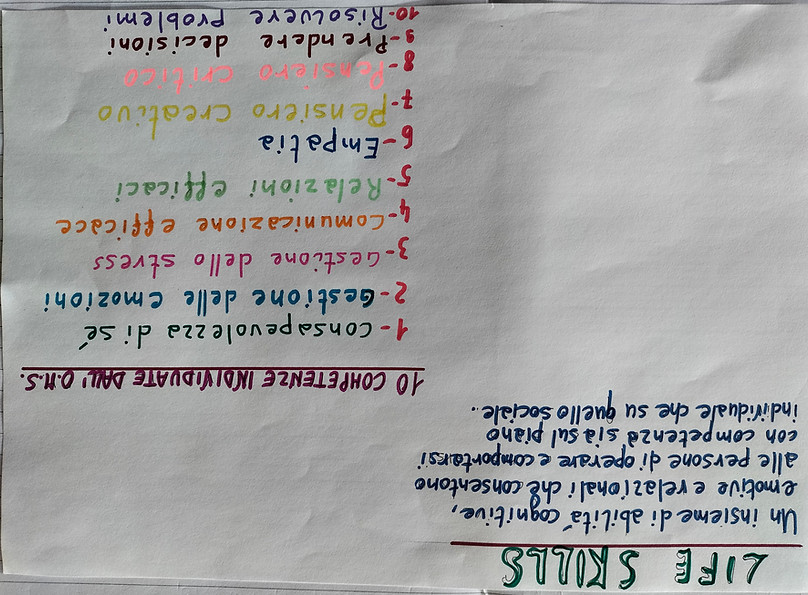 LIFE SKILLS
Un insieme di abilità cognitive,
emotive e relazionali che consentono
alle persone di operare e comportarsi
con competenza sia sul piano
individuale che su quello sociale..
10 COMPETENZE INDIVIDUATE DALL'O.M.S.
1-Consapevolezza di sé
2-Gestione delle emozioni
3-Gestione dello stress
4-Comunicazione efficace
5-Relazioni efficaci
6-Empatia
7-Pensiero creativo
8-Pensiero critico
9-Prendere decisioni
10-Risolvere problemi